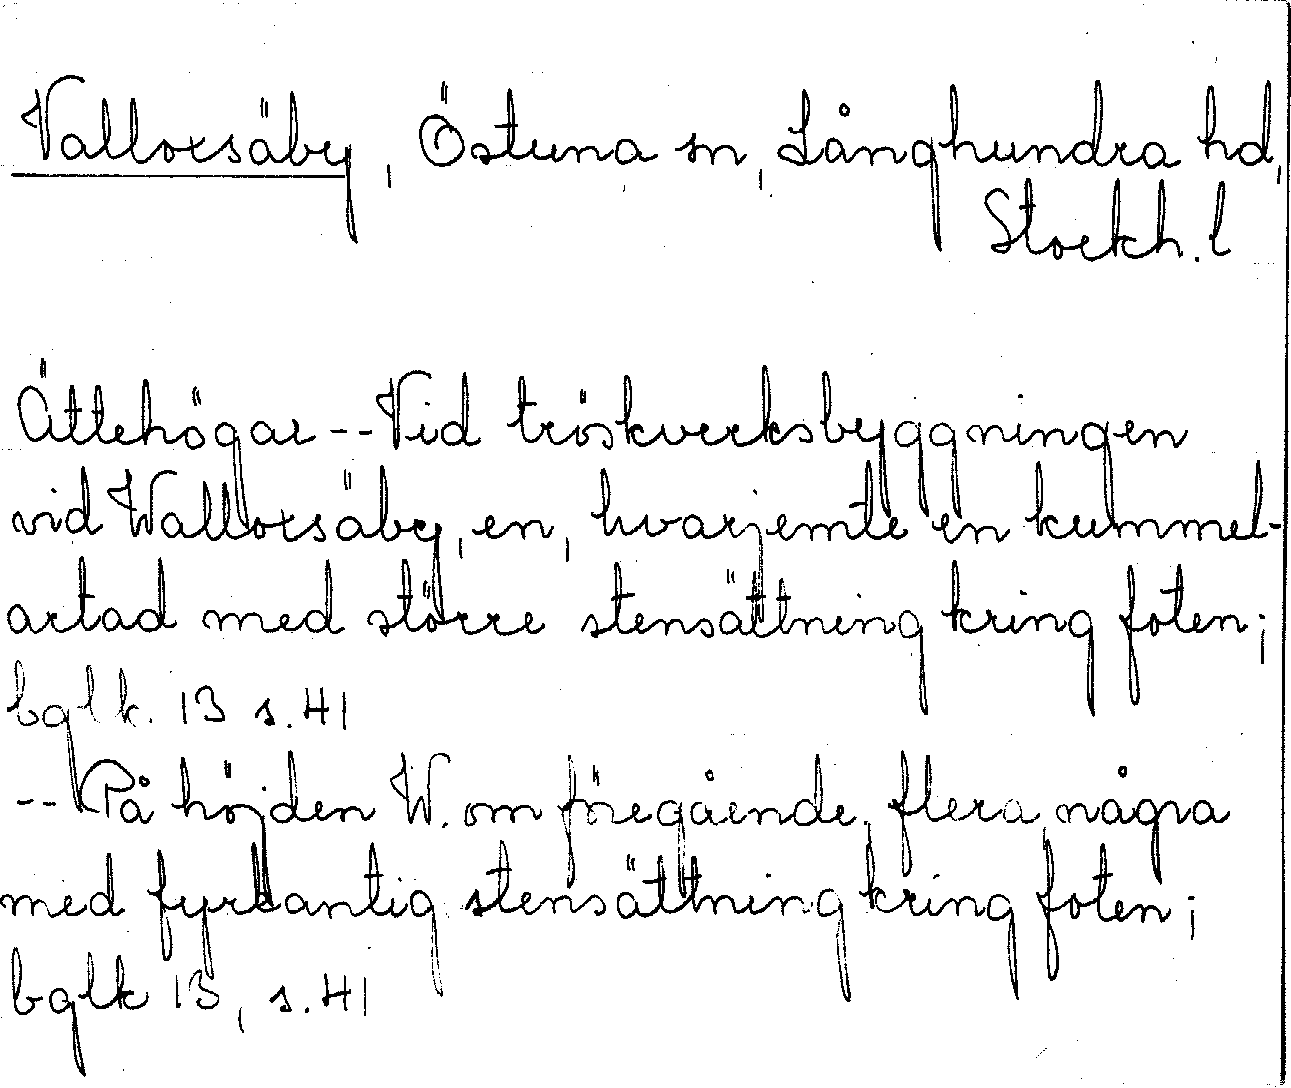 Vallorsäby, Östuna sn, Långhundra hd,
Stockh. l
Ättehögar -- Vid tröskverksbyggningen
vid Wallorsäby, en, hvarjemte en kummel-
artad med större stensättning kring foten;
bglk. 13 s. 41
-- På höjden W. om föregående, flera, några
med fyrkantig stensättning kring foten;
bglk 13, s. 41